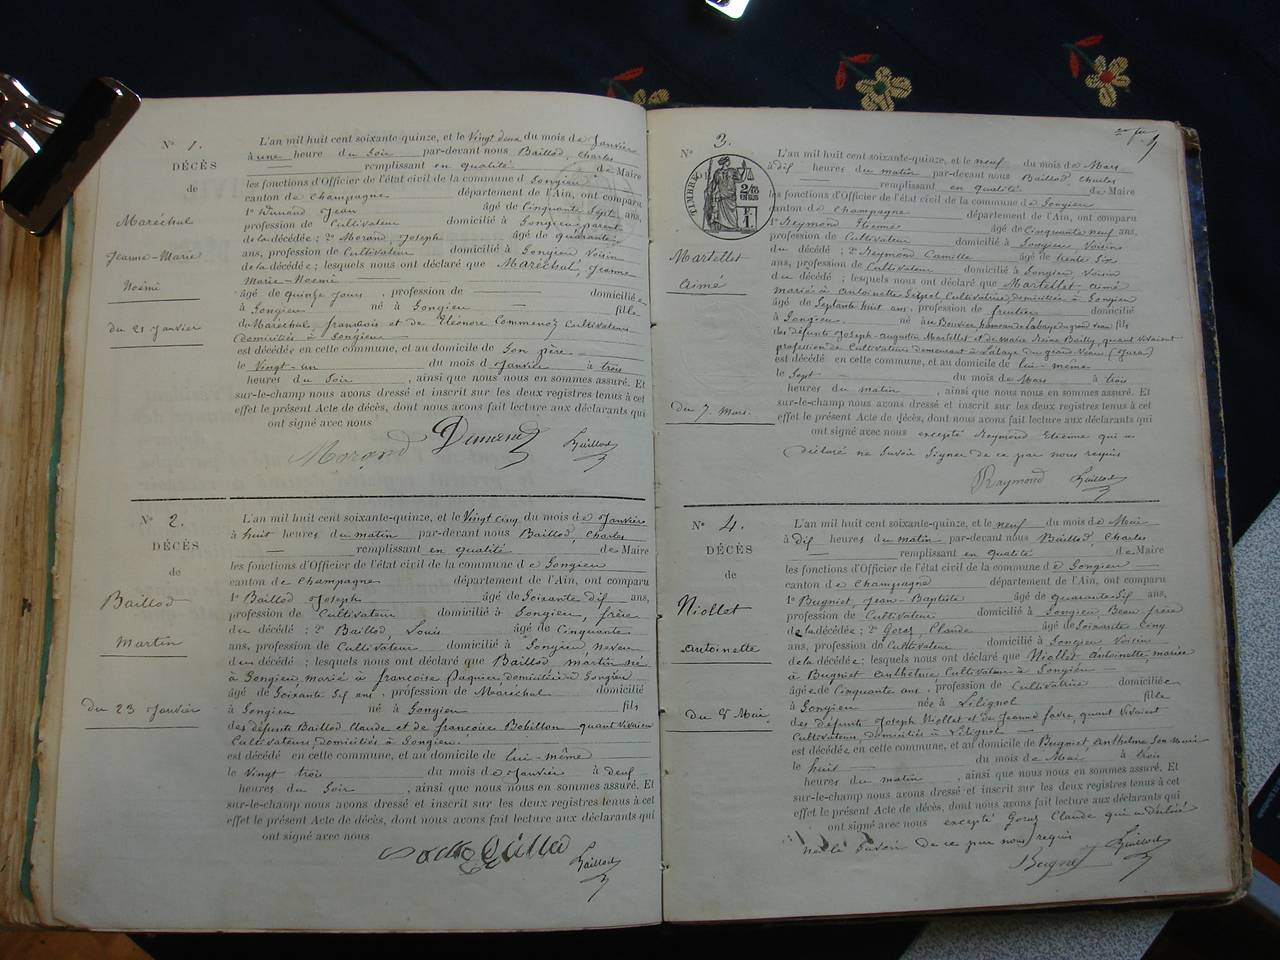 N° 1.
DÉCÈS
de
Maréchal
Jeanne-Marie
Noëmi
du 21 Janvier
L'an mil huit cent soixante-quinze, et le Vingt deux du mois de Janvière
à une heure du Soir par-devant nous Baillod, Charles
remplissant en qualité de Maire
les fonctions d'Officier de l'état civil de la commune de Songieu
canton de Champagne département de l'Ain, ont comparu
1° Dumond Jean âgé de Cinquante Sept ans,
profession de Cultivateur domicilié à Songieu parent
de la décédée; 2° Morand, Joseph âgé de quarante
ans, profession de Cultivateur domicilié à Songieu Voisin
de la décédée; lesquels nous ont déclaré que Maréchal, Jeanne
Marie-Noémie
âgé de quinze jours, profession de domiciliée
à Songieu né à Songieu fille
de Maréchal, françois et de Eléonore Commenoz Cultivateurs
domiciliés à Songieu
est décédée en cette commune, et au domicile de Son père
le Vingt-un du mois d Janvier à trois
heures du Soir, ainsi que nous nous en sommes assuré. Et
sur-le-champ nous avons dressé et inscrit sur les deux registres tenus à cet
effet le présent Acte de décès, dont nous avons fait lecture aux déclarants qui
ont signé avec nous
Morand Baillod
N° 2.
DÉCÈS
de
Baillod
Martin
Du 23 Janvier
L'an mil huit cent soixante-quinze, et le Vingt cinq du mois de Janvière
à huit heures du matin par-devant nous Baillod, Charles
remplissant en qualité de Maire
les fonctions d'Officier de l'état civil de la commune de Songieu
canton de Champagne département de l'Ain, ont comparu
1° Baillod Joseph âgé de Soixante dix ans,
profession de Cultivateur domicilié à Songieu, frère
du décédé; 2° Baillod, Louis âgé de Cinquante
ans, profession de Cultivateur domicilié à Songieu neveu
d'un décédé; lesquels nous ont déclaré que Baillod, martin né
à Songieu, marié à françoise Paquier, domiciliée à Songieu
âgé de Soixante Six ans, profession de Maréchal domicilié
à Songieu né à Songieu fils
des défunts Baillod Claude et de françoise Bobillon quant vivaient
Cultivateurs, domiciliés à Songieu
est décédé en cette commune, et au domicile de lui-même
le Vingt trois du mois de Janvier à deux
heures du Soir, ainsi que nous nous en sommes assuré. Et
sur-le-champ nous avons dressé et inscrit sur les deux registres tenus à cet
effet le présent Acte de décès, dont nous avons fait lecture aux déclarants qui
ont signé avec nous
Baillod
N° 3.
TIMBRE
Martellet
Aimé
Du 7 Mars.
L'an mil huit cent soixante-quinze, et le neuf du mois de Mars
à dix heures du matin par-devant nous Baillod, Charles
remplissant en qualité de Maire
les fonctions d'Officier de l'état civil de la commune de Songieu
canton de Champagne département de l'Ain, ont comparu
1° Reymond Etienne âgé de Cinquante neuf ans,
profession de Cultivateur domicilié à Songieu Voisin
du décédé; 2° Reymond Camille âgé de trente Six
ans, profession de Cultivateur domicilié à Songieu, Voisin
du décédé; lesquels nous ont déclaré que Martellet, aimé
marié à Antoinette Cultivatrice, domiciliée à Songieu
âgé de Septante huit ans, profession de fruitier domicilié
à Songieu né au Bouvier, hameau de Labaye du grand vaux fils
des défunts Joseph-Augustin Martellet et de marie Reine Bailly, quand vivaient
profession de Cultivateurs demeurant à Labaye du grand Vaux (Jura)
est décédé en cette commune, et au domicile de lui-même
le Sept du mois de Mars à trois
heures du matin, ainsi que nous nous en sommes assuré. Et
sur-le-champ nous avons dressé et inscrit sur les deux registres tenus à cet
effet le présent Acte de décès, dont nous avons fait lecture aux déclarants qui
ont signé avec nous excepté Reymond Etienne qui a
déclaré ne Savoir Signer de ce par nous requis
Raymond Baillod
N° 4.
DÉCÈS
de
Niollet
Antoinette
Du 8 Mai
L'an mil huit cent soixante-quinze, et le neuf du mois de Mai
à dix heures du matin par-devant nous Baillod, Charles
remplissant en qualité de Maire
les fonctions d'Officier de l'état civil de la commune de Songieu
canton de Champagne département de l'Ain, ont comparu
1° Bugniet, Jean-Baptiste âgé de quarante Six ans,
profession de Cultivateur domicilié à Songieu Beau frère
de la décédée; 2° Goroz, Claude âgé de Soixante cinq
ans, profession de Cultivateur domicilié à Songieu Voisin
de la décédée; lesquels nous ont déclaré que Niollet Antoinette, mariée
à Bugniet Anthelme Cultivateur à Songieu
âgée de Cinquante ans, profession de Cultivatrice domiciliée
à Songieu née à Lilignol fille
des défunts Joseph Niollet et de Jeanne favre, quant Vivaient
Cultivateurs, domiciliés à Lilignol
est décédée en cette commune, et au domicile de Bugniet, Anthelme Son mari
le huit du mois de Mai à trois
heures du matin, ainsi que nous nous en sommes assuré. Et
sur-le-champ nous avons dressé et inscrit sur les deux registres tenus à cet
effet le présent Acte de décès, dont nous avons fait lecture aux déclarants qui
ont signé avec nous excepté Goroz Claude qui a déclaré
ne le Savoir de ce par nous requis
Baillod